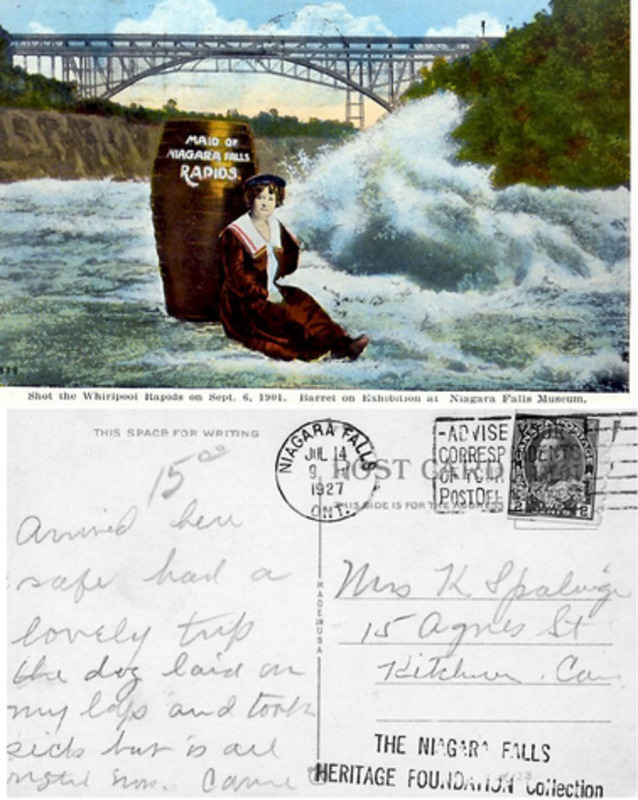 MAID OF
NIAGARA FALLS
RAPIDS.
Shot the Whirlpool Rapids on Sept. 6, 1901. Barrel on Exhibition at Niagara Falls Museum.
THIS SPACE FOR WRITING
NIAGARA FALLS
JUL 14
9
1927
ONT.
-ADVISE YOUR
CORRESP DENTS
OF YOUR
POST OFF
POST CARD
THIS SIDE IS FOR THE ADDRESS
2 2
MADE IN USA
Arrived here
safe had a
lovely trip
the dog laid on
my laps and took
sick but is all
now.
Mrs K
15 Agnes St
Kitchner. Can
THE NIAGARA FALLS
HERITAGE FOUNDATION Collection